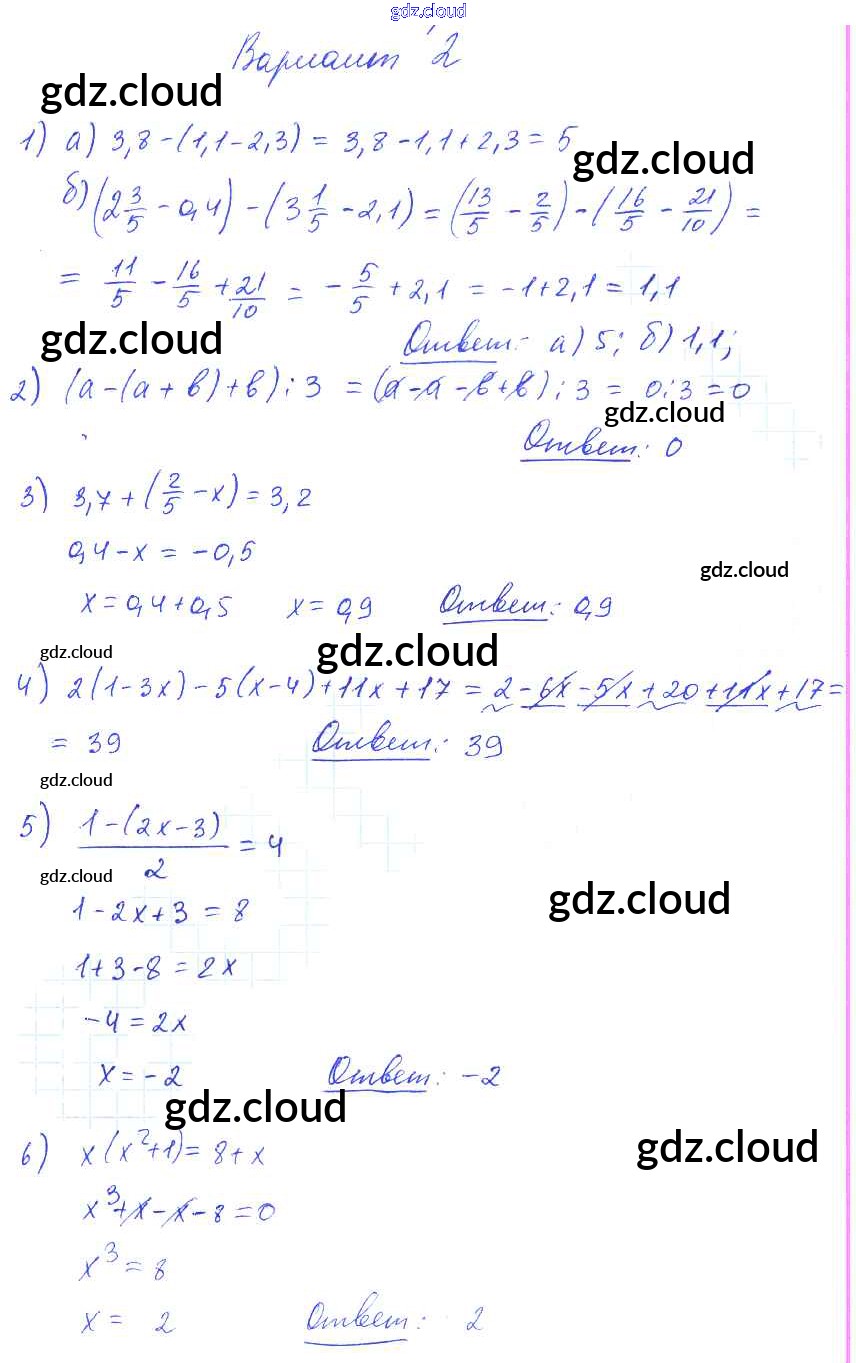 gdz.cloud
Вариант 2
gdz.cloud
1) а) 3,8-(1,1-2,3) = 3,8-1,1+2,3 = 5
gdz.cloud
б) (2 3/5 - 0,4) - (3 1/5 - 2,1) = (13/5 - 2/5) - (16/5 - 21/10) =
= 11/5 - 16/5 + 21/10 = - 5/5 + 2,1 = -1+2,1 = 1,1
gdz.cloud
Ответ: а) 5; б) 1,1;
2) (а-(а+в)+в):3 = (а-а-в+в):3 = 0:3 = 0
gdz.cloud
Ответ: 0
3) 3,7 + (2/5 - x) = 3,2
0,4-x = -0,5
gdz.cloud
x = 0,4+0,5 x = 0,9 Ответ: 0,9
gdz.cloud
gdz.cloud
4) 2(1-3x)-5(x-4)+11x+17 = 2-6x-5x+20+11x+17 =
= 39 Ответ: 39
gdz.cloud
5) 1-(2x-3)/2 = 4
gdz.cloud
gdz.cloud
1-2x+3 = 8
1+3-8 = 2x
-4 = 2x
x = -2 Ответ: -2
gdz.cloud
gdz.cloud
6) x(x²+1) = 8+x
x³+x-x-8 = 0
x³ = 8
x = 2 Ответ: 2